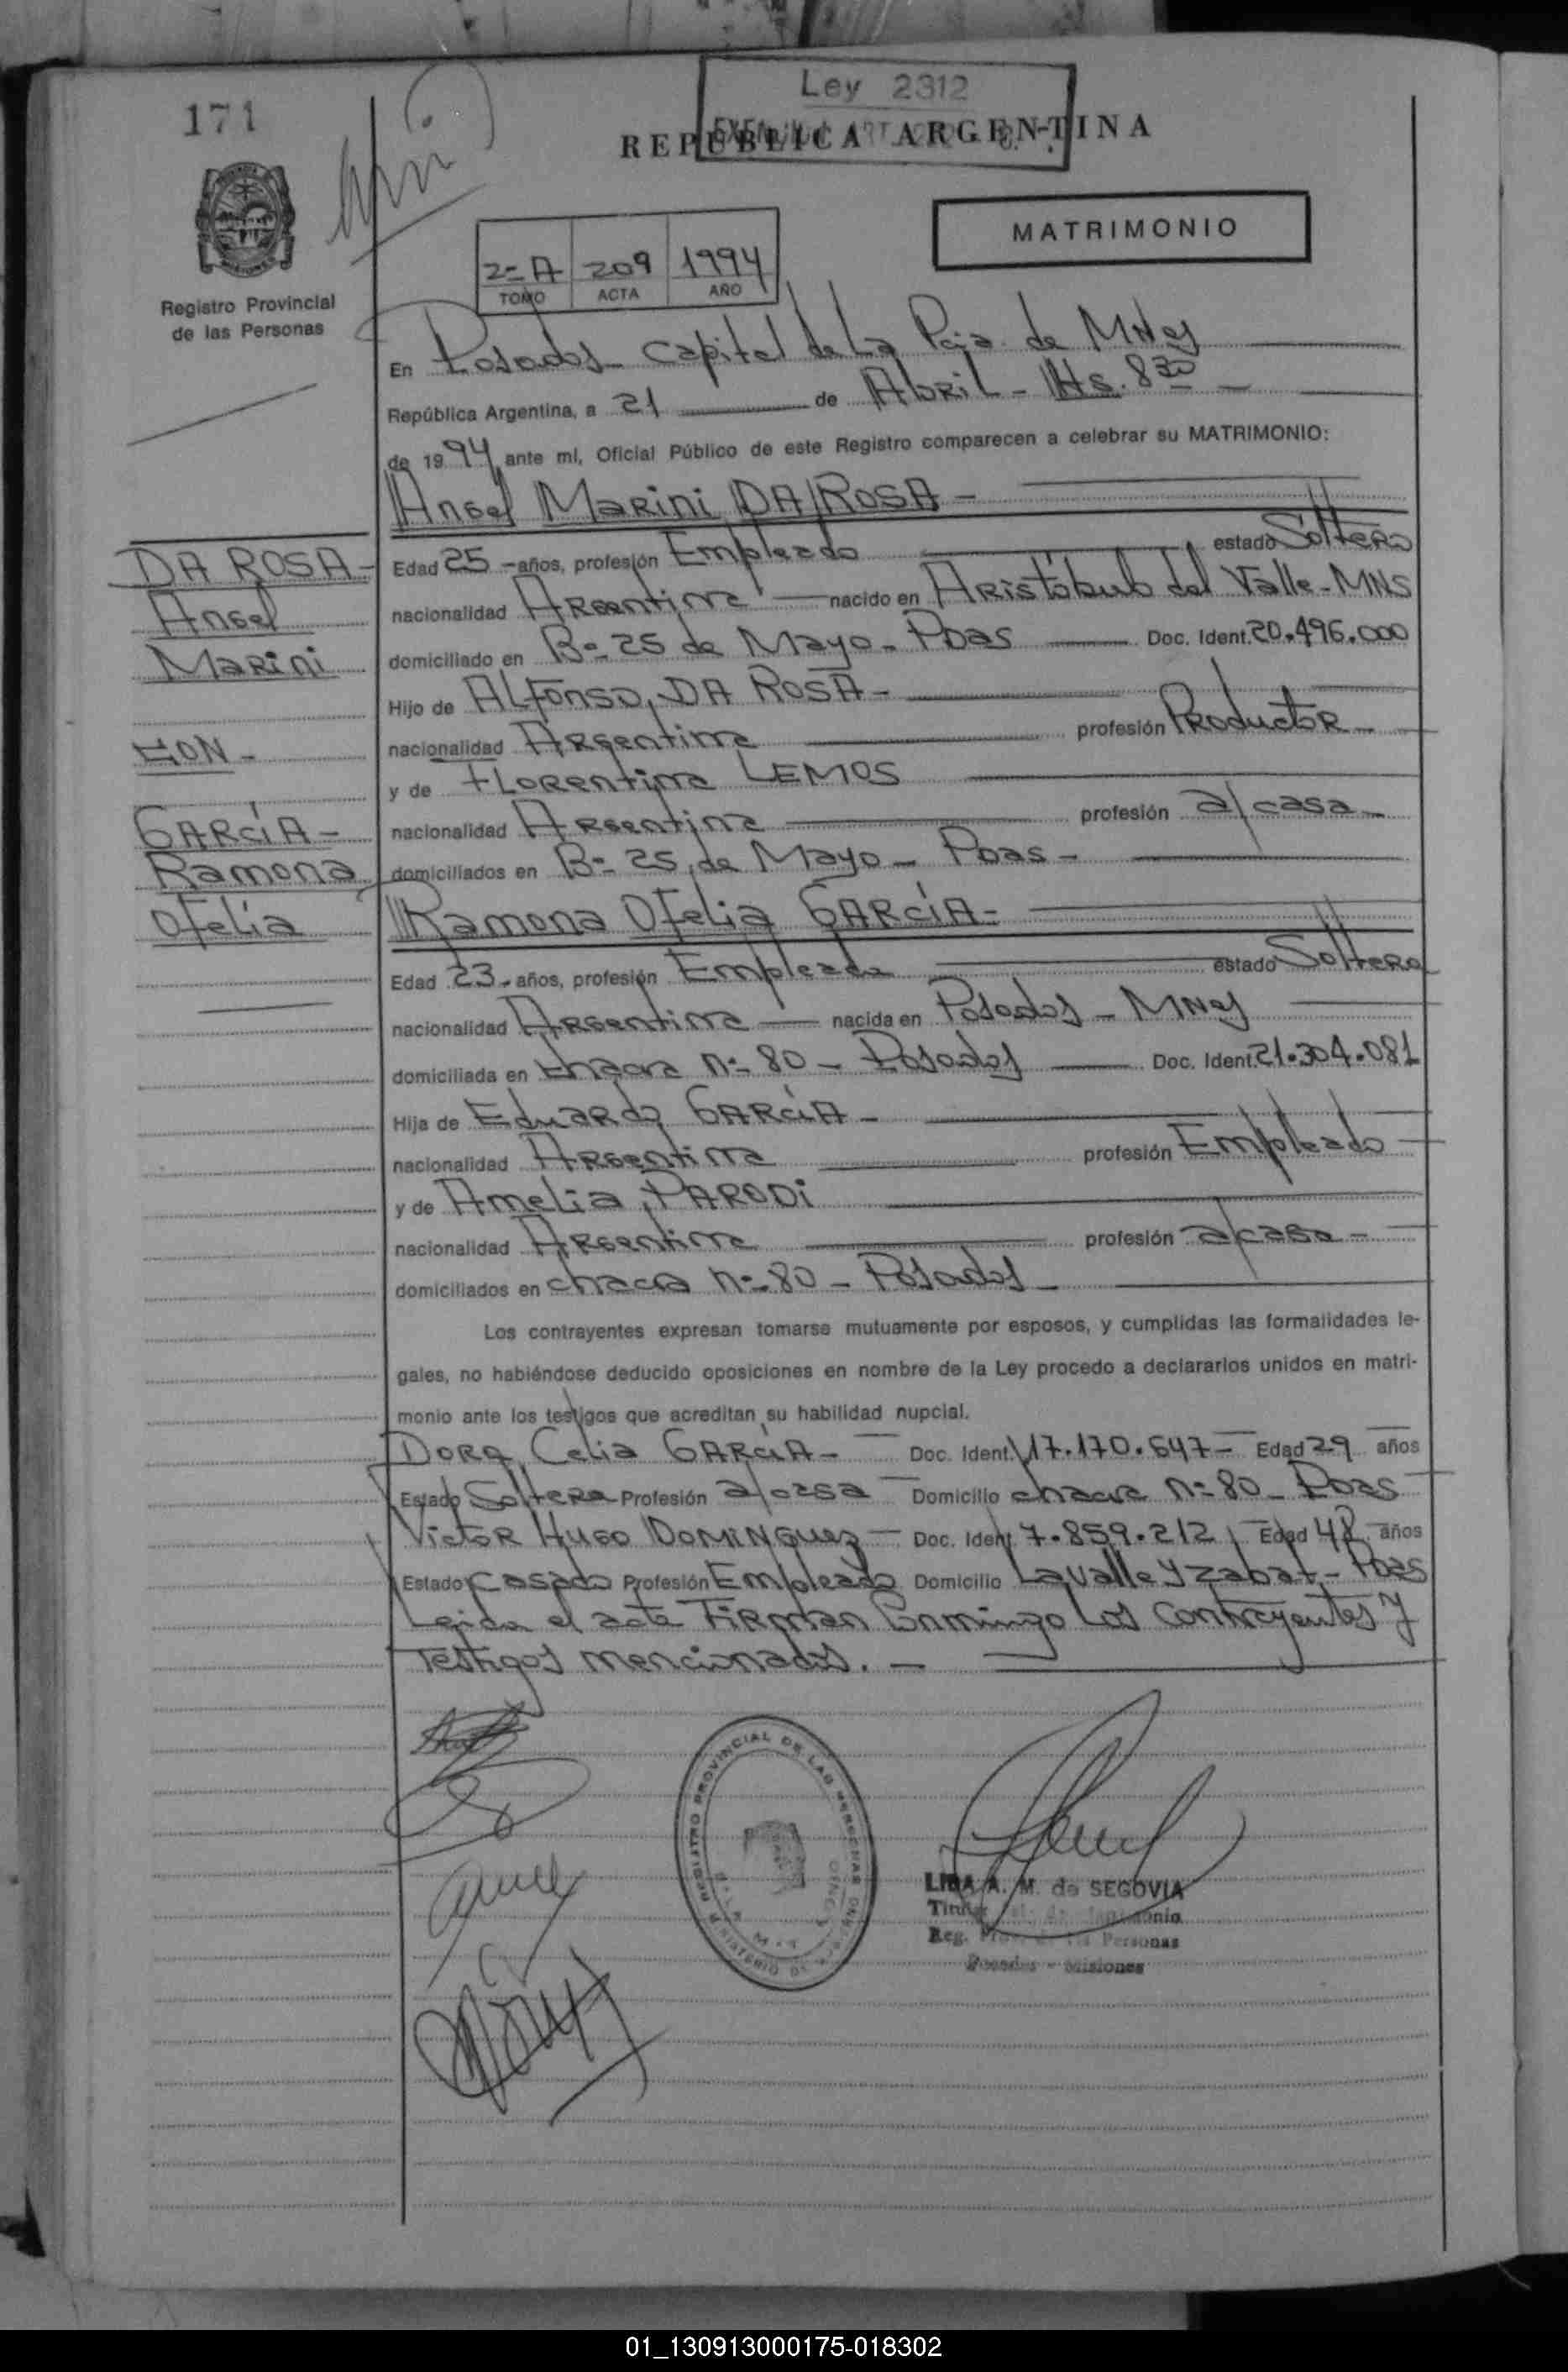 171
Ley 2312
REPUBLICA ARGENTINA
MATRIMONIO
2=A 209 1994
TOMO ACTA AÑO
Registro Provincial
de las Personas
En Posadas Capital de La Pcia. de MNes
República Argentina, a 21 de Abril - Hs. 8 30
de 1994 ante mí, Oficial Público de este Registro comparecen a celebrar su MATRIMONIO:
Angel Marini DA ROSA -
DA ROSA -
Angel
Marini
CON -
GARCÍA -
Ramona
Ofelia
Edad 25 - años, profesión Empleado estado Soltero
nacionalidad Argentina nacido en Aristóbulo del Valle - MNS
domiciliado en B= 25 de Mayo - Pdas Doc. Ident. 20.496.000
Hijo de ALFONSO DA ROSA -
nacionalidad Argentina profesión Productor
y de Florentina LEMOS
nacionalidad Argentina profesión a/casa
domiciliados en B= 25 de Mayo - Pdas -
Ramona Ofelia GARCÍA -
Edad 23 - años, profesión Empleada estado Soltera
nacionalidad Argentina nacida en Posadas - MNes
domiciliada en Chacra n= 80 - Posadas Doc. Ident. 21.304.081
Hija de Eduardo GARCÍA -
nacionalidad Argentina profesión Empleado
y de Amelia PARODI
nacionalidad Argentina profesión a/casa -
domiciliados en chacra n= 80 - Posadas -
Los contrayentes expresan tomarse mutuamente por esposos, y cumplidas las formalidades le-
gales, no habiéndose deducido oposiciones en nombre de la Ley procedo a declararlos unidos en matri-
monio ante los testigos que acreditan su habilidad nupcial.
Dora Celia GARCÍA - Doc. Ident. 17.170.647 - Edad 29 años
Estado Soltera Profesión a/casa Domicilio chacra n= 80 - Pdas
Victor Hugo DOMINGUEZ - Doc. Ident. 7.859.212 Edad 48 años
Estado Casado Profesión Empleado Domicilio Lavalle y Zabat - Pdas
Leida el acta Firman Conmingo Los Contrayentes y
Testigos mencionados. -
REGISTRO PROVINCIAL DE LAS PERSONAS
MINISTERIO DE
LIDA A. M. de SEGOVIA
Titular
Reg. Prov. de las Personas
Posadas - Misiones
01_130913000175-018302